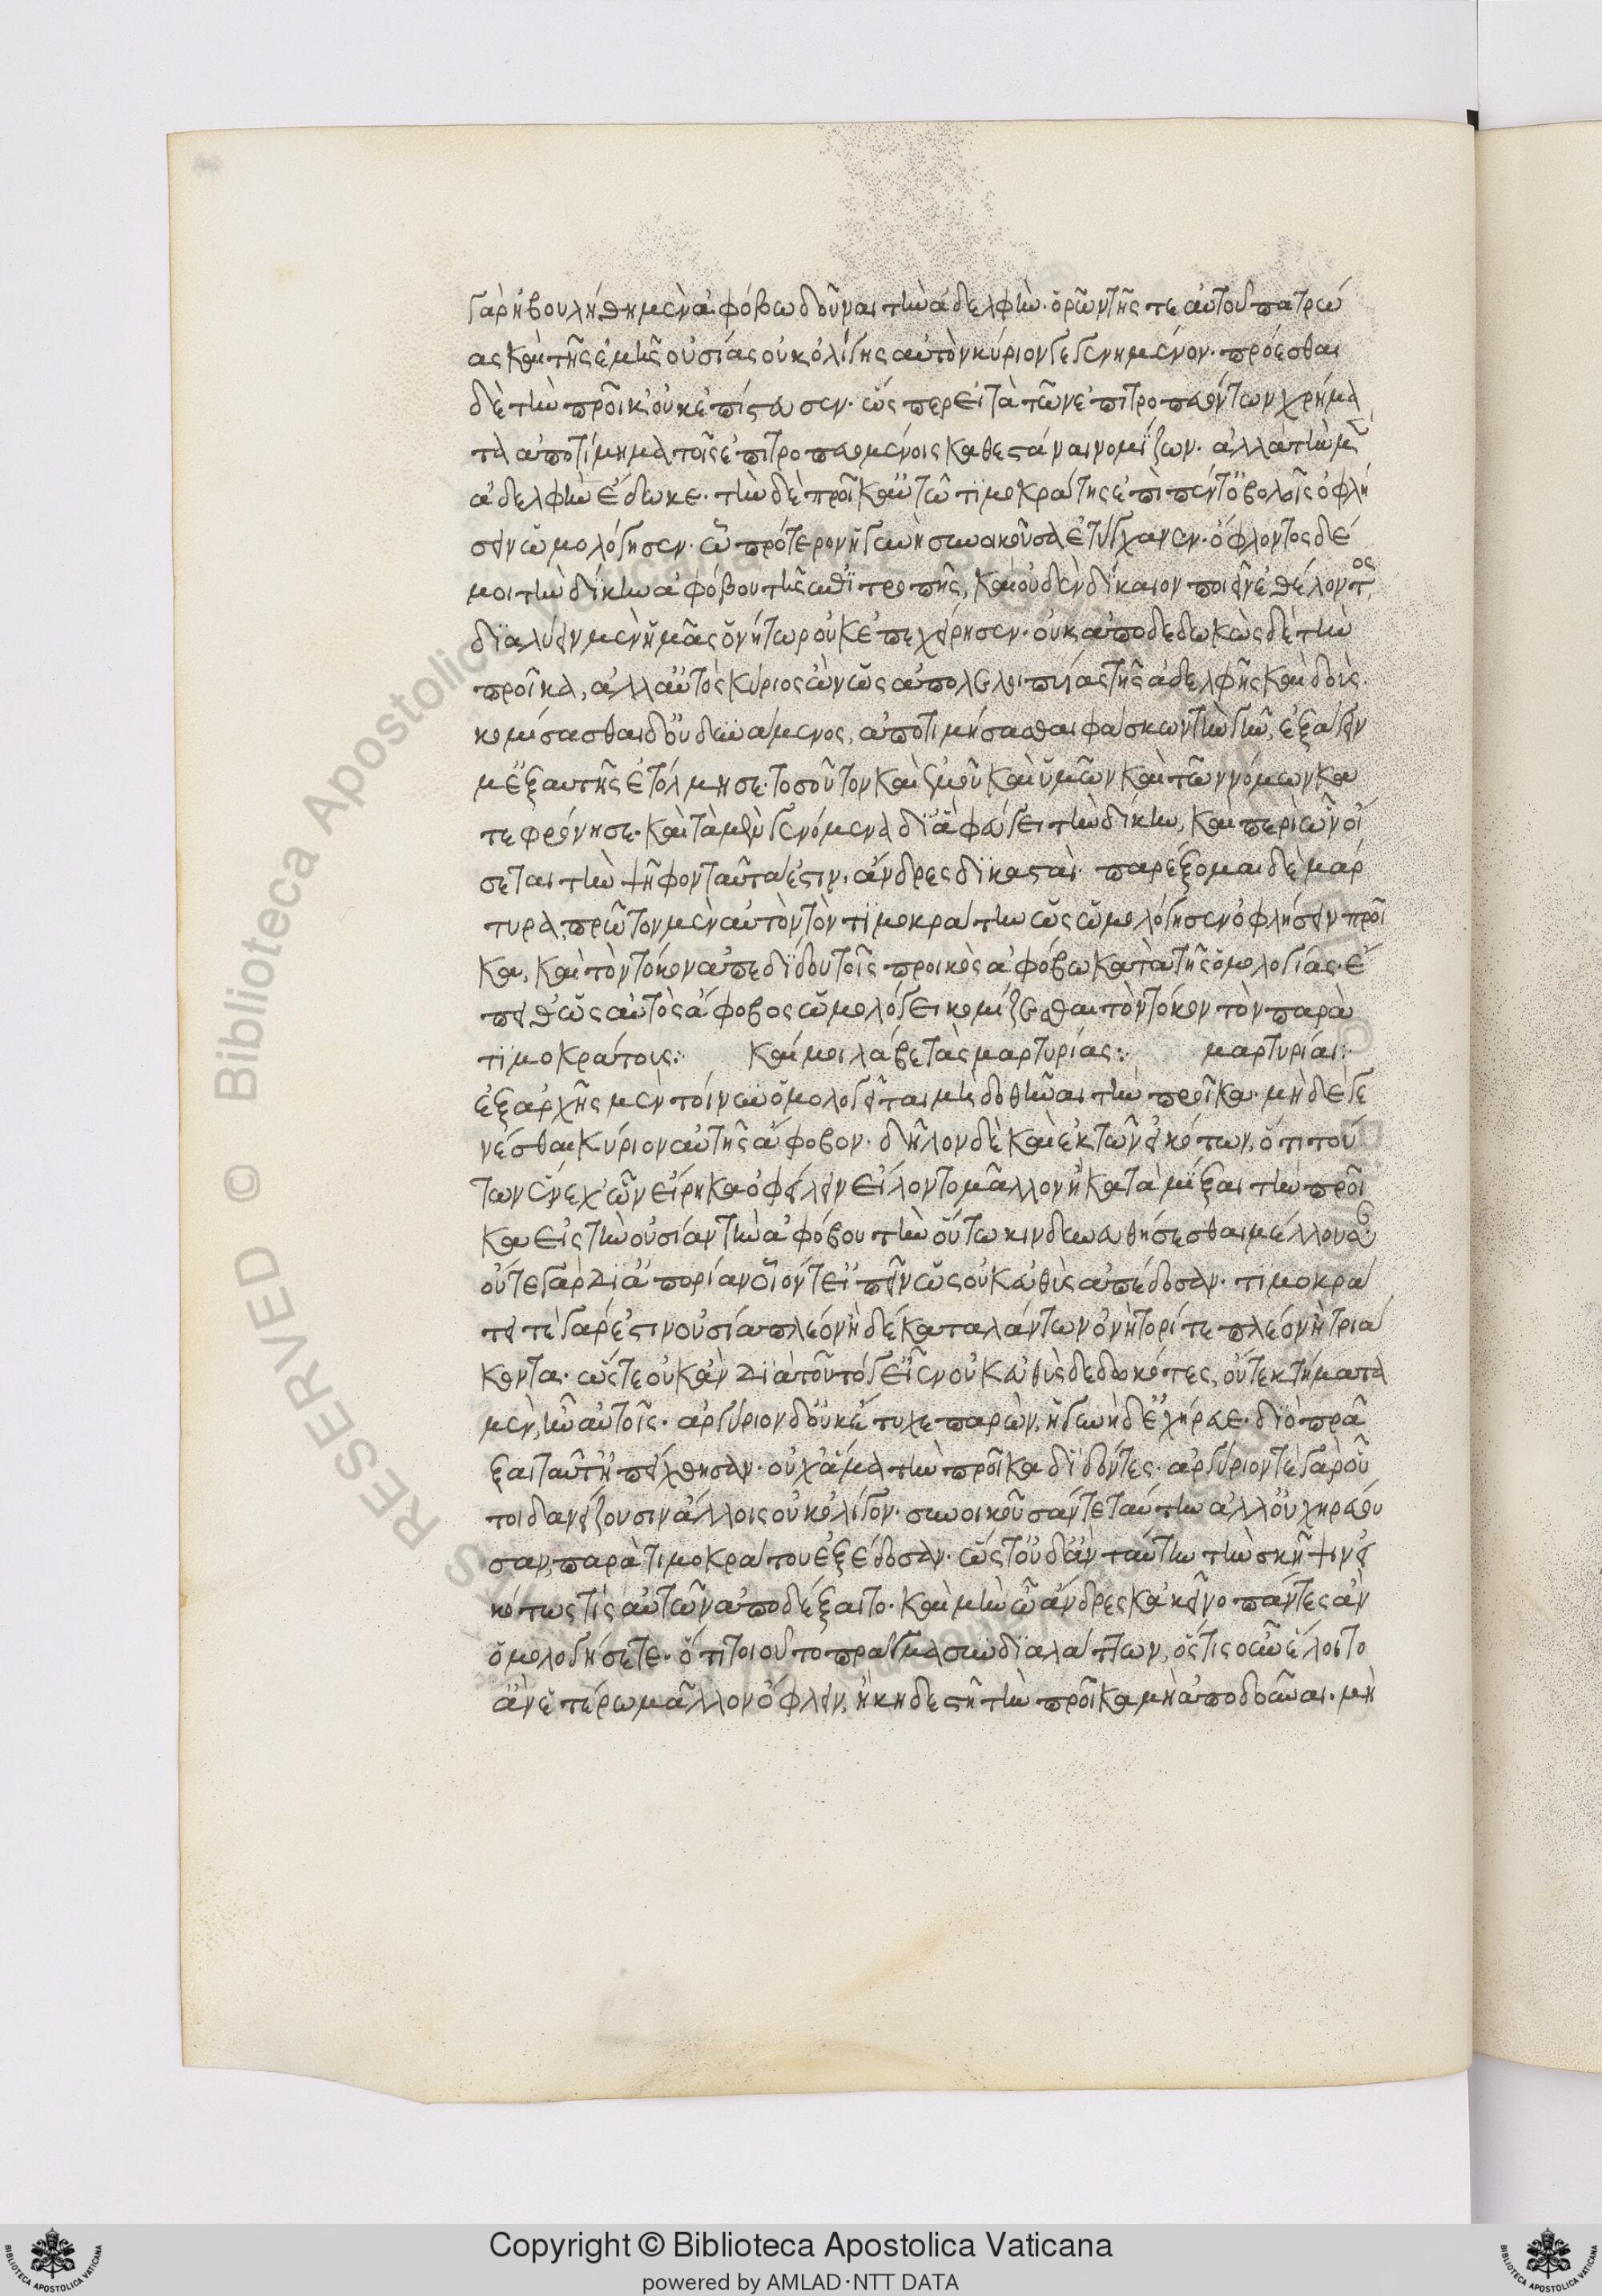 γὰρ ἠβουλήθη μὲν ἀφόβω δοῦναι τὴν ἀδελφὴν· ὁρῶν τῆς τε αὐτοῦ πατρώ
ας καὶ τῆς ἐμῆς οὐσίας οὐκ ὀλίγης αὐτὸν κύριον γεγενημένον· προέσθαι
δὲ τὴν προῖκ' οὐκ ἐπίστευσεν· ὥσπερ εἰ τὰ τῶν ἐπιτροπευόντων χρήμα
τα ἀποτίμημα τοῖς ἐπιτροπευομένοις καθεστάναι νομίζων· ἀλλὰ τὴν μὲν
ἀδελφὴν ἔδωκε· τὴν δὲ προῖκ' αὐτῶ τιμοκράτης ἐπὶ πέντ' ὀβολοῖς ὀφλή
σειν ὡμολόγησεν· ὧ πρότερον ἡ γυνὴ συνοικοῦσα ἐτύγχανεν· ὀφλόντος δέ
μοι τὴν δίκην ἀφόβου τῆς ἐπιτροπῆς, καὶ οὐδὲν δίκαιον ποιεῖν ἐθέλοντος,
διαλύειν μὲν ἡμᾶς ὀνήτωρ οὐκ ἐπεχείρησεν· οὐκ ἀποδεδωκὼς δὲ τὴν
προῖκα, ἀλλ' αὐτὸς κύριος ὢν ὡς ἀπολελοιπυίας τῆς ἀδελφῆς καὶ δοὺς
κομίσασθαι δ' οὐ δυνάμενος, ἀποτιμήσασθαι φάσκων τὴν γῆν, ἐξάγειν
μ' ἐξ αὐτῆς ἐτόλμησε· τοσοῦτον καὶ ἐμοῦ καὶ ὑμῶν καὶ τῶν νόμων κα
τεφρόνησε· καὶ τὰ μὲν γενόμενα δι' ἃ φεύγει τὴν δίκην, καὶ περὶ ὧν οἴ
σεται τὴν ψῆφον ταῦτα ἐστιν. ἄνδρες δικασταὶ· παρέξομαι δὲ μάρ
τυρα, πρῶτον μὲν αὐτὸν τὸν τιμοκράτην ὡς ὡμολόγησεν ὀφλήσειν προῖ
κα, καὶ τὸν τόκον ἀπεδίδου τοῖς προικὸς ἀφόβω κατὰ τῆς ὁμολογίας· ἔ
πειθ' ὡς αὐτὸς ἄφοβος ὡμολόγει κομίζεσθαι τὸν τόκον τὸν παρὰ
τιμοκράτους: καί μοι λαβὲ τὰς μαρτυρίας: μαρτυρίαι:
ἐξ ἀρχῆς μὲν τοίνυν ὁμολογεῖται μὴ δοθῆναι τὴν προῖκα· μὴδὲ γε
νέσθαι κύριον αὐτῆς ἄφοβον· δῆλον δὲ καὶ ἐκ τῶν εἰκότων, ὅτι τού
των ἕνεχ' ὧν εἴρηκα ὀφείλειν εἵλοντο μᾶλλον ἢ καταμίξαι τὴν προῖ
κα εἰς τὴν οὐσίαν τὴν ἀφόβου τὴν οὕτω κινδυνευθήσεσθαι μέλλουσαν·
οὔτε γὰρ δι' ἀπορίαν οἷόντ' εἰπεῖν ὡς οὐκ εὐθὺς ἀπέδοσαν· τιμοκρά
τει τὲ γάρ ἐστιν οὐσία πλέον ἢ δέκα ταλάντων ὀνήτορί τε πλέον ἢ τριά
κοντα· ὥστε οὐκ ἂν διὰ τοῦτό γ' εἶεν οὐκ εὐθὺς δεδωκότες, οὔτε κτήματα
μὲν ἦν αὐτοῖς· ἀργύριον δ' οὐκ ἔτυχε παρὸν, ἡ γυνὴ δ' ἐχήρευε· διὸ πρᾶ
ξαι ταῦτ' ἠπείχθησαν· οὐχ ἅμα τὴν προῖκα διδόντες· ἀργύριόν τε γὰρ οὗ
τοι δανείζουσιν ἄλλοις οὐκ ὀλίγον· συνοικοῦσάν τε ταύτην ἀλλ' οὐ χηρεύου
σαν, παρὰ τιμοκράτου ἐξέδοσαν· ὥστ' οὐδ' ἂν ταύτην τὴν σκῆψιν εἰ
κότως τίς αὐτῶν ἀποδέξαιτο· καὶ μὴν ὦ ἄνδρες κἀκεῖνο πάντες ἂν
ὁμολογήσετε· ὅτι τοιοῦτο πρᾶγμα συνδιαλάττων, ὅστις οὖν ἕλοιτο
ἂν ἑτέρω μᾶλλον ὀφλεῖν, ἢ κηδεστῆ τὴν προῖκα μὴ ἀποδοῦναι· μὴ
Copyright © Biblioteca Apostolica Vaticana
powered by AMLAD·NTT DATA